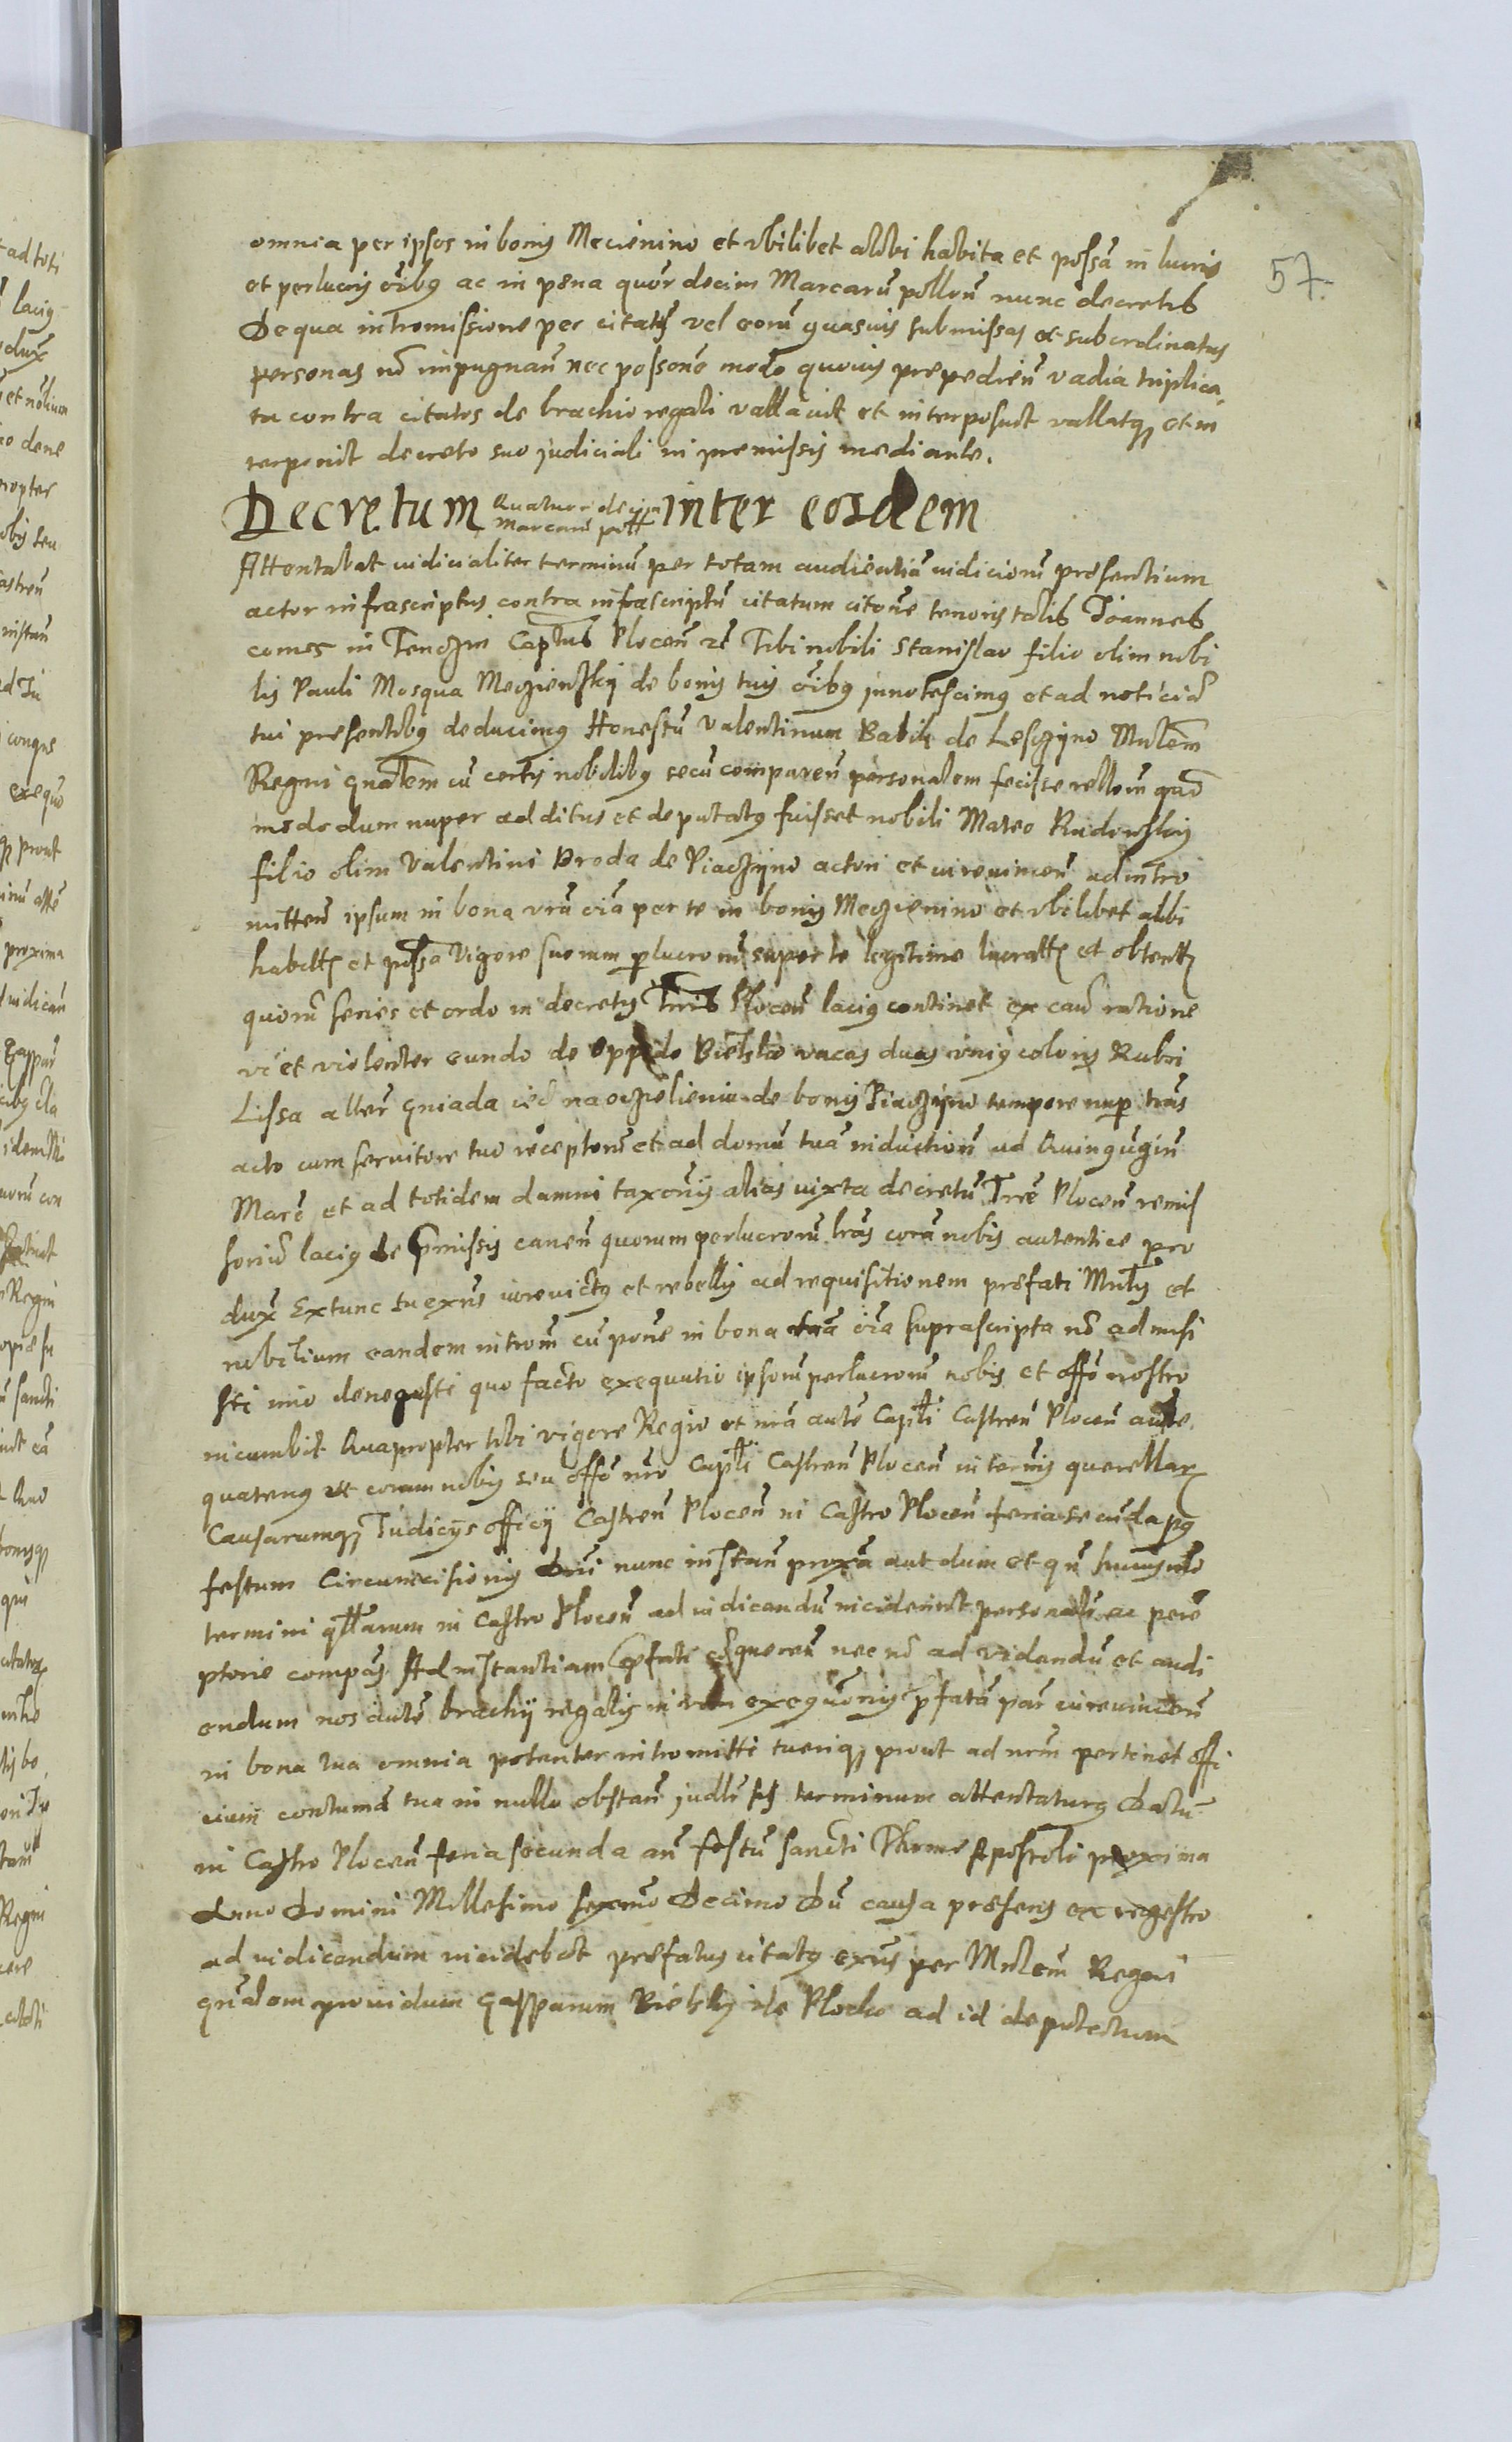 57.
omnia per ipsos in bonis Mecienino et vbilibet alibi habita et possa in lucris
et perlucris oibq ac in pena quor decim Marcaru pollon nunc decretis
De qua intromissione per citatos vel eoru quasuis submissas et subordinatas
personas no impugnan nec possone modo quouis prepedien vadia triplica
ta contra citatos de brachio regali vallauit et interposuit vallatq et in
terponit decreto suo judiciali in premissis mediante.
Decretum Quatuor decim Marcaru poll inter eosdem
Attentabat iudicialiter terminu per totam audientia iudicioru presentium
actor infrascriptus contra infrascriptu citatum citone tenoris talis Joannes
comes in Tenczin Captus Plocen rc Tibi nobili Stanislao filio olim nobi
lis Pauli Mosqua Meczienskij de bonis tuis oibq innotescimq et ad noticia
tui presentibq deducimq Honestu Valentinum Babik de Lesczyno Mnlem
Regni gnalem cu certis nobilibq secu comparen personalem fecisse rellom quo
modo dum nuper additus et deputatq fuisset nobili Mateo Rudowskij
filio olim Valentini Broda de Piaczyno actori et iureuincen ad intro
mitten ipsum in bona vra oia per te in bonis Meczienino et vbilibet alibi
habita et possa Vigore suorum perlucroru super te legitime lucrat et obtent
quoru series et ordo in decretis Trris Plocen laciq continet ex cau ratione
vi et violenter eundo de oppido Bielsko vacas duas vniq coloris Rubri
Lissa alter gniada de bonis Piaczyno tempore nup tras
acto cum seruitore tuo receptoru et ad domu tua inductioru ad Quingugin
Marc et ad totidem damni taxonis alias iuxta decretu Trre Plocen remis
soriu lacig de pmissis canen quorum perlucroru lras cora nobis autentice pro
dux Extunc tu exns iureuictq et rebellis ad requisitionem prefati Mnlis et
nobilium eandem introm cu pone in bona tua oia suprascripta no admisi
sti imo denegasti quo facto exequutio ipsoru perlucroru nobis et offo nostro
incumbit Quapropter tibi vigore Regio et nra aute Capli Castren Plocen
quatenq vt coram nobis seu offo nro Capli Castren Plocen in ternis querellar
Causarumq Judicijs officij Castren Plocen in Castro Plocen feria secunda pq
festum Circumcisionis Dni nunc instan proxa aut dum et qn
termini qllarum in Castro Plocen ad iudicandu inciderint personalr ac pere
ptorie compas Ad instantiam pfati conqueren nec no ad videndu et audi
endum nos aute brachij regalis in exequonis pfata par iureuincen
in bona tua omnia potenter intromitti tueriq prout ad nrm pertinet offi
cium contuma tua in nullo obstan judlr terminum attentaturq Datu
in Castro Plocen feria secunda an festu sancti Thome Apostoli proxima
Anno Domini Millesimo sexcmo Decimo Du causa presens ex regestro
ad iudicandum incidebat prefatus citatq exns per Mnlem Regni
gnalem prouidum Gasparum Bielskij de Plocko ad id deputatum